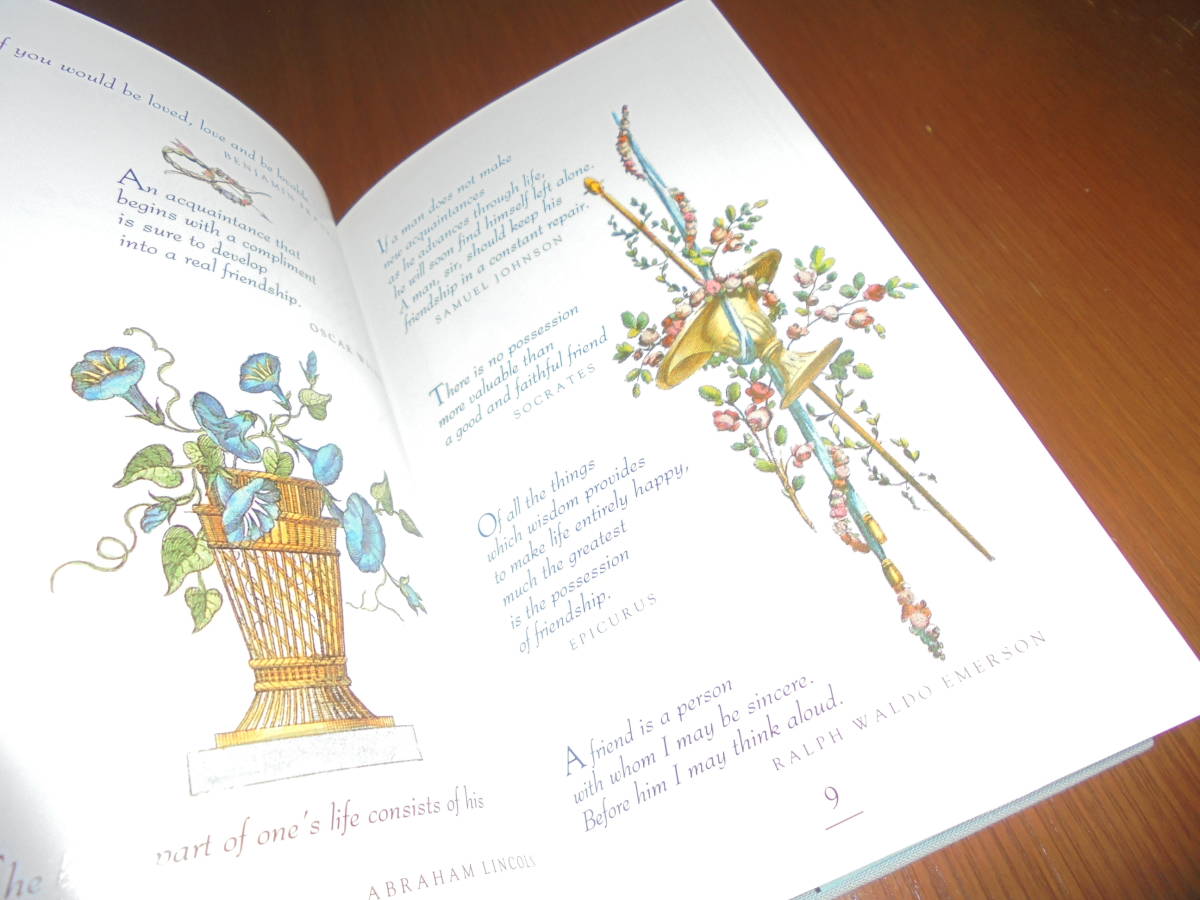 f you would be loved, love and be lovable.
BENJAMIN
An acquaintance that
begins with a compliment
is sure to develop
into a real friendship.
OSCAR
The
part of one's life consists of his
ABRAHAM LINCOLN
If a man does not make
new acquaintances
as he advances through life,
he will soon find himself left alone.
A man, sir, should keep his
friendship in a constant repair.
SAMUEL JOHNSON
There is no possession
more valuable than
a good and faithful friend
SOCRATES
Of all the things
which wisdom provides
to make life entirely happy,
much the greatest
is the possession
of friendship.
EPICURUS
A friend is a person
with whom I may be sincere.
Before him I may think aloud.
RALPH WALDO EMERSON
9